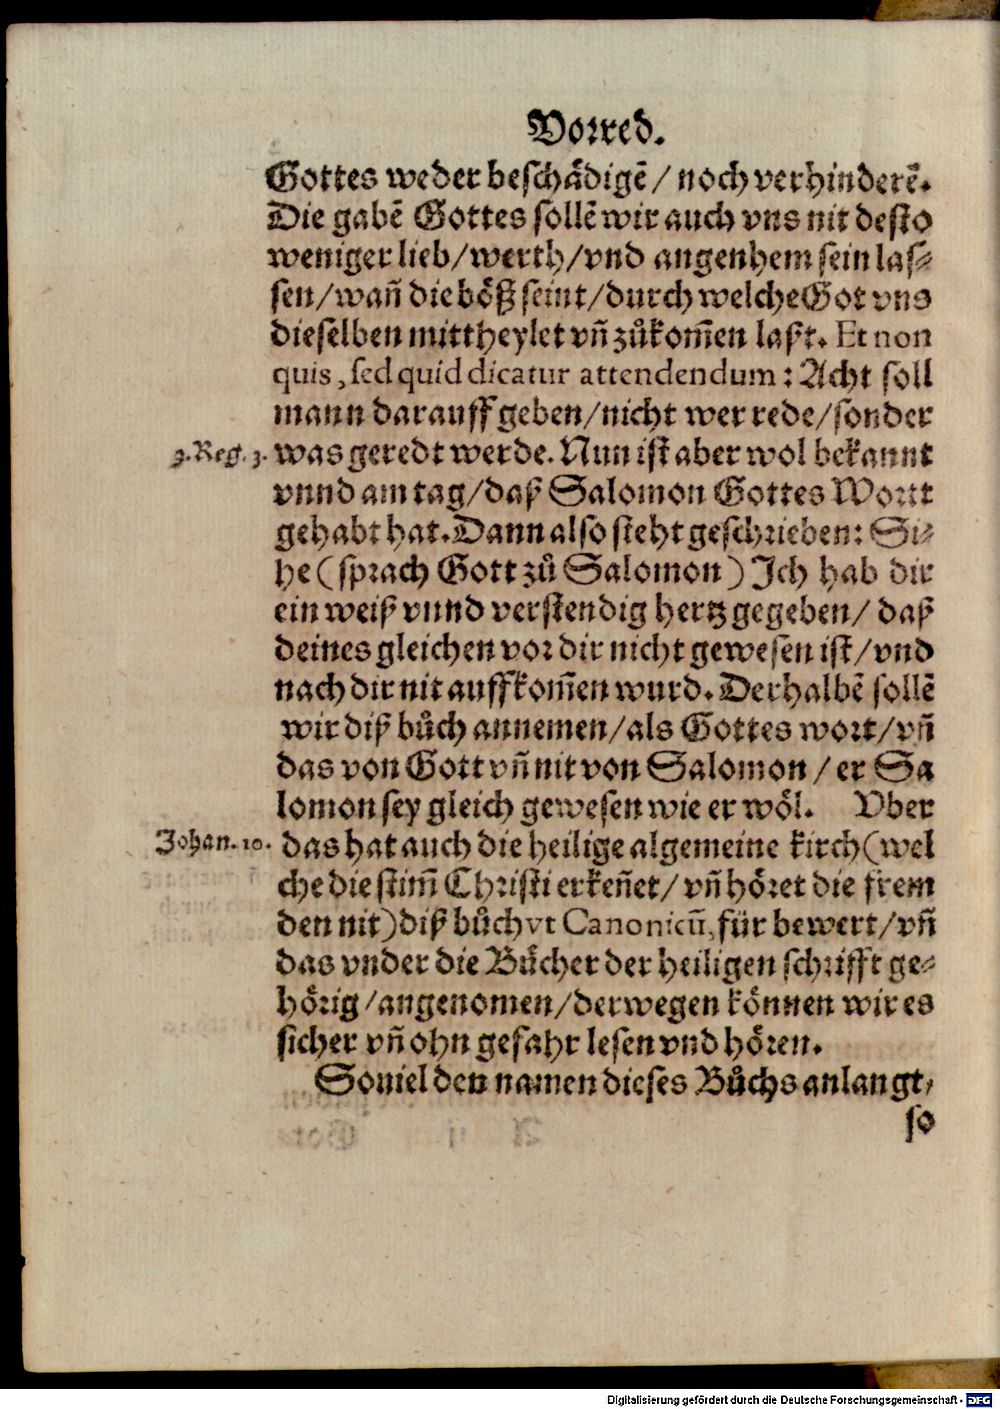 Vorred.
Gottes weder beschådigē / noch verhinderē.
Die gabē Gottes sollē wir auch vns nit desto
weniger lieb/werth/vnd angenhem sein las-
sen/wañ die böß seint/durch welche Got vns
dieselben mittheylet vñ zůkom̃en laßt. Et non
quis, sed quid dicatur attendendum: Acht soll
mann darauff geben/nicht wer rede/sonder
3. Reg. 3. was geredt werde. Nun ist aber wol bekannt
vnnd am tag/daß Salomon Gottes Wortt
gehabt hat. Dann also steht geschrieben: Si-
he (sprach Gott zů Salomon) Ich hab dir
ein weiß vnnd verstendig hertz gegeben/ daß
deines gleichen vor dir nicht gewesen ist/vnd
nach dir nit auffkom̃en wurd. Derhalbē sollē
wir diß bůch annemen/als Gottes wort/vñ
das von Gott vñ nit von Salomon / er Sa
lomon sey gleich gewesen wie er wöl. Vber
Johan. 10. das hat auch die heilige algemeine kirch (wel
che die stim̃ Christi erkeñet/ vñ höret die frem
den nit) diß bůch vt Canonicū, für bewert/vñ
das vnder die Bücher der heiligen schrifft ge-
hörig/angenomen/derwegen können wir es
sicher vñ ohn gefahr lesen vnd hören.
Souiel den namen dieses Bůchs anlangt,
so
Digitalisierung gefördert durch die Deutsche Forschungsgemeinschaft - DFG